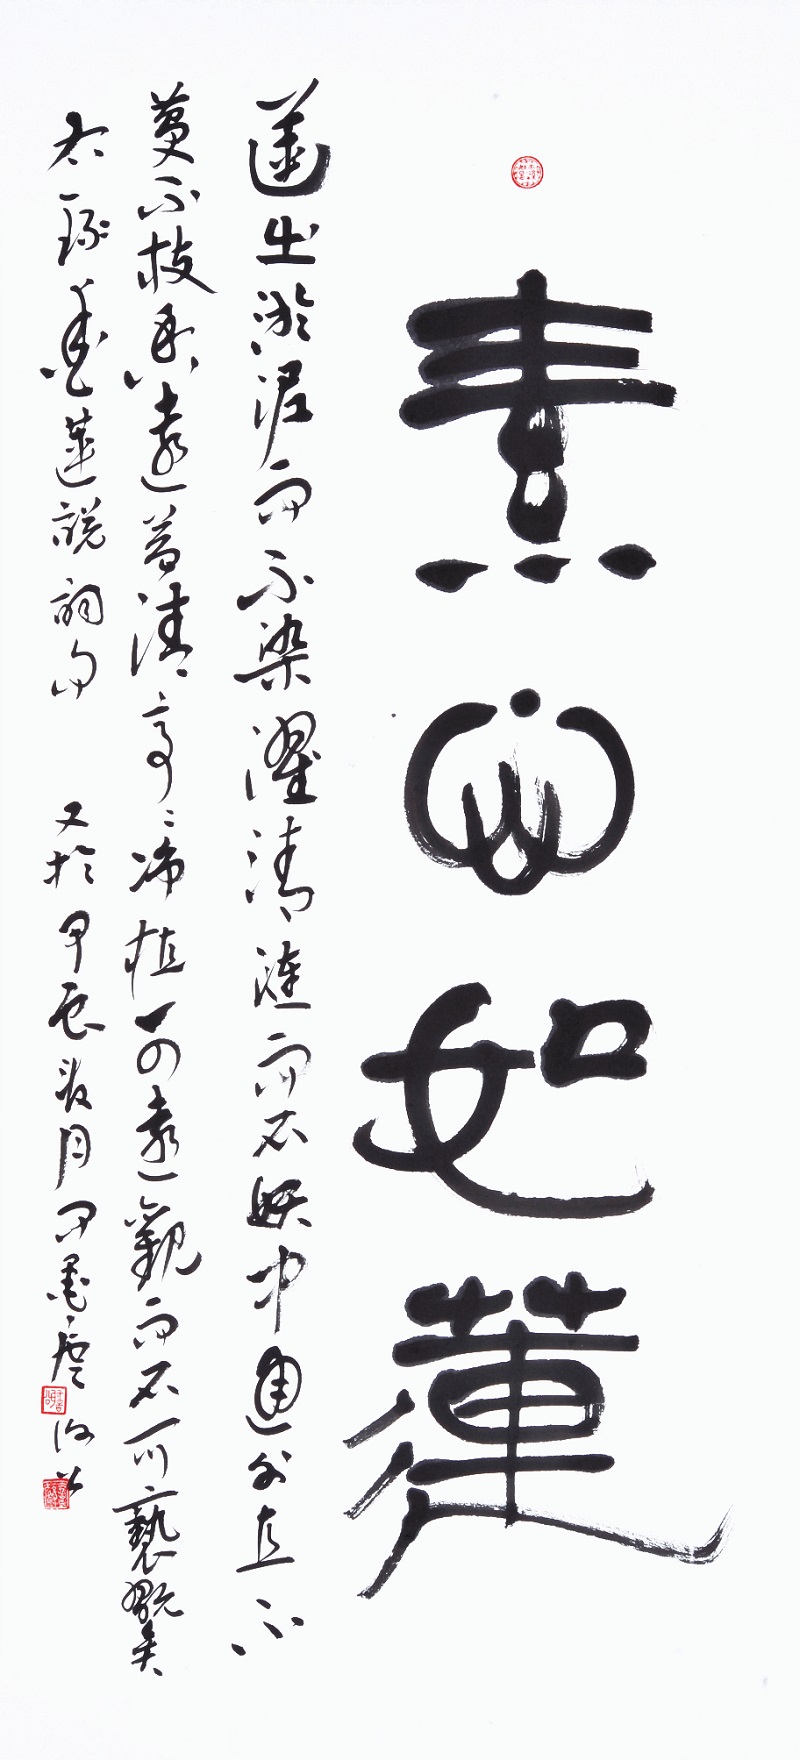 素心如蓮
蓮出淤泥而不染濯清漣而不妖中通外直不
蔓不枝香遠益清亭々净植可遠觀而不可褻翫矣
右錄愛蓮說詞句 又於甲辰月